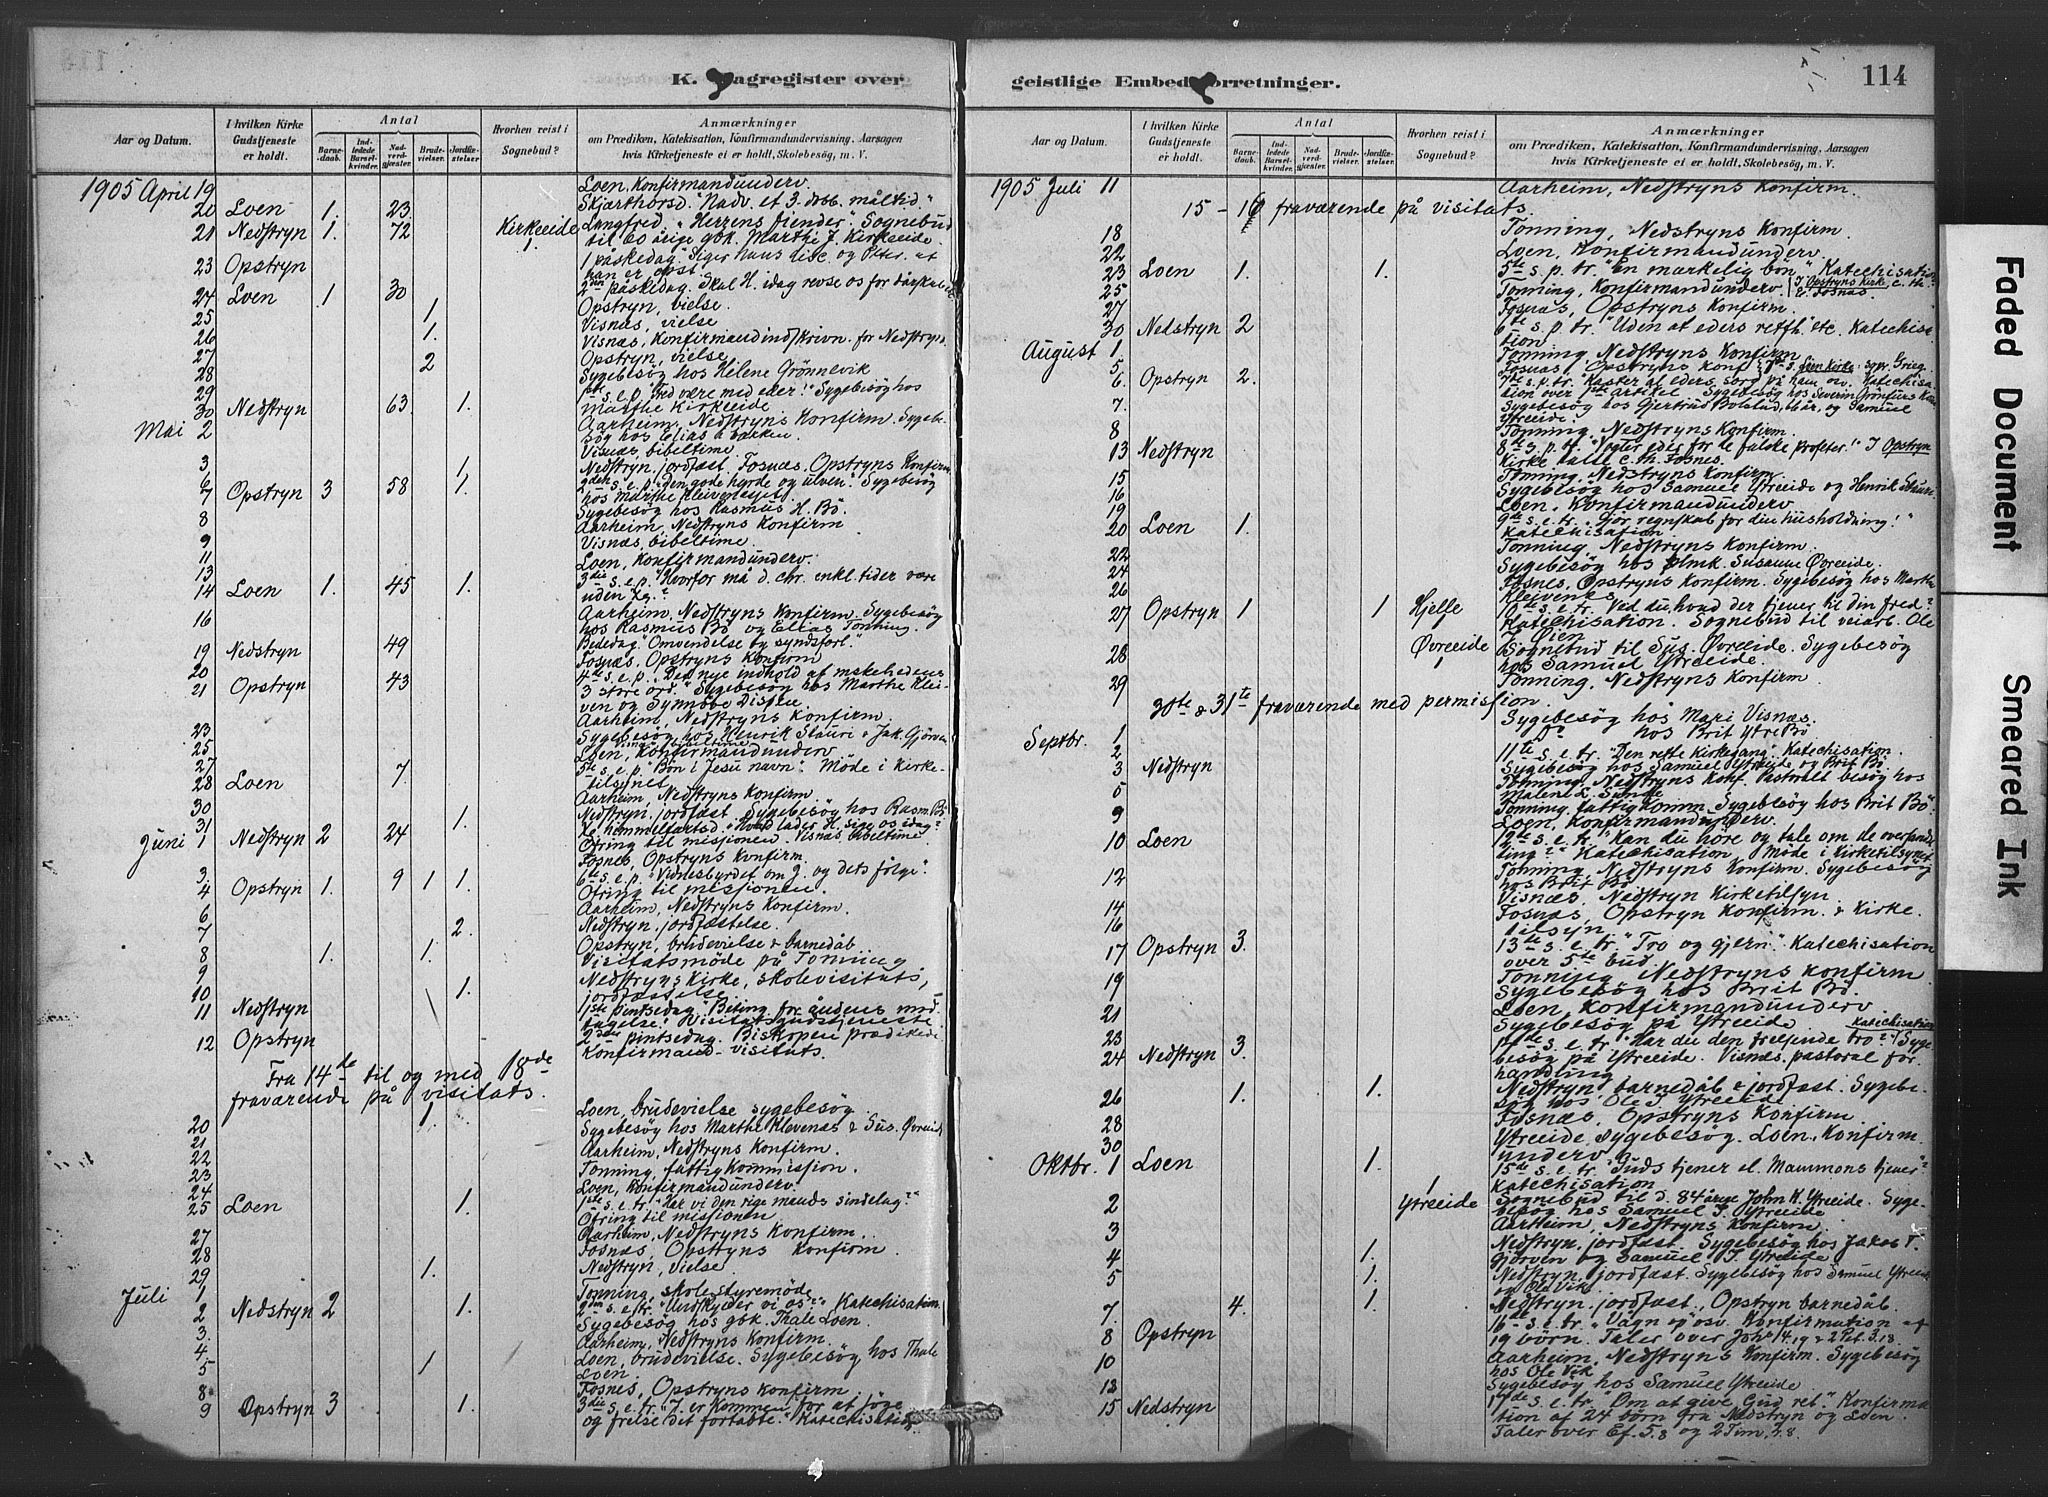 K. Dagregister over
Aar og Datum.
I hvilken Kirke Gudstjeneste er holdt.
Antal
Barnedaab.
Indledede Barselkvinder.
Nadverdgjester.
Brudevielser.
Jordfæstelser.
Hvorhen reist i Sognebud?
Anmærkninger
om Prædiken, Katekisation, Konfirmandundervisning, Aarsagen
hvis Kirketjeneste ei er holdt, Skolebesøg, m. V.
1905 April 19 Loen, Konfirmandunderv.
20 Loen 1. 23. Skjærthorsd. "Nadv. et 3. dobb. måltid."
21 Nedstryn 1. 72 Kirkeeide 1 Langfred. "Herrens fiender". Sognebud
til 60 årige gbk. Marthe J. Kirkeeide.
23 Opstryn 1 påskedag. Siger Paus disc og Peter at
han er opst.
24 Loen 1 30 2den påskedag. Skal H. idag revse os for
25 1 Opstryn, vielse
26 1. Visnæs, vielse
27 Visnæs, Konfirmandindskrivn. for Nedstryn
28 2 Opstryn, vielse
29 Sygebesøg hos Helene Grønnevik
30 Nedstryn 63. 1. 1ste s. e. p. "Fred være med eder!" Sygebesøg hos
Marthe Kirkeeide
Mai 2 Aarheim, Nedstryns Konfirm. Sygebe-
søg hos Elias å bakken.
3 Visnæs, bibeltime.
6 1. Nedstryn, jordfæst. Fosnæs, Opstryns Konfirm
7 Opstryn 3 58 1. 2den s. e. p. "den gode hyrde og ulven". Sygebesøg
hos Marthe
8 Sygebesøg hos Rasmus H. Bø.
9 Aarheim, Nedstryns Konfirm
11 Visnæs, bibeltime.
13 Loen, Konfirmandunderv.
14 Loen 1. 45 1. 3die s. e. p. "Hvorfor må d. chr. enkl. tider være
uden
16 Aarheim, Nedstryns Konfirm. Sygebesøg
hos Rasmus Bø og Elias Tonning.
19 Nedstryn 49 Bededag. "Omvendelse og syndsforl."
20 Fosnæs, Opstryns Konfirm
21 Opstryn 43 4de s. e. p. "Det nye indhold af mskehedens
3 store ord." Sygebesøg hos Marthe Klei-
ven og Synnøve
23 Aarheim, Nedstryns Konfirm
25 Sygebesøg hos Henrik Stauri & Jak. Gjørven
27 Loen, Konfirmandunderv
28 Loen 7. 5te s. e. p. "Bøn i Jesu navn". Møde i Kirke-
tilsynet
30 Aarheim, Nedstryns Konfirm
31 1. Nedstryn, jordfæst. Sygebesøg hos Rasm. Bø
Juni 1 Nedstryn 2 24 Kr. himmelfartsd. "Hvad lader H. sige os idag?"
Ofring til missionen. Visnæs bibeltime.
3. Fosnes, Opstryns Konfirm.
4 Opstryn 1. 9 1 1. 6te s. e. p. "Vidnesbyrdet om J. og dets følge".
Ofring til missionen.
6 Aarheim, Nedstryns Konfirm.
7 2. Nedstryn, jordfæstelse.
8 1. 1. Opstryn, brudevielse & barnedåb
9 Visitatsmøde på Tonning
10 1. Nedstryns Kirke, skolevisitats,
jordfæstelse
11 Nedstryn 1ste pintsedag. Beting. for åndens mod-
tagelse. Visitatsgudstjeneste
12 Opstryn 2den pintsedag. Biskopen prædikede
Konfirmand-visitats.
Fra 14de til og med 18de
fraværende på visitats.
20 1. Loen, brudevielse sygebesøg
21 Sygebesøg hos Marthe Klevenæs & Sus. Øvreeide
22 Aarheim, Nedstryns Konfirm.
23 Tonning, fattigkommission.
24 Loen, Konfirmandunderv.
25 Loen 1. 1ste s. e. tr. "Har vi den rige mands sindelag?"
Ofring til missionen
27 Aarheim, Nedstryns Konfirm.
28 Fosnæs, Opstryns Konfirm.
29 1. Nedstryn, vielse
Juli 1 Tonning, skolestyremøde
2 Nedstryn 2 1. 2den s. e. tr. "Undskylder vi os?" Katechisation.
Sygebesøg hos gbk. Thale Loen.
3. Aarheim, Nedstryns Konfirm.
4
5 1 Loen, brudevielse. Sygebesøg hos Thale
Loen
8 Fosnes, Opstryns Konfirm
9 Opstryn 3 1. 3die s. e. tr. "J. er kommen for at søge
og frelse det fortabte." Katechisation
geistlige Embedsforretninger.
114
Aar og Datum.
I hvilken Kirke Gudstjeneste er holdt.
Antal
Barnedaab.
Indledede Barselkvinder.
Nadverdgjester.
Brudevielser.
Jordfæstelser.
Hvorhen reist i Sognebud?
Anmærkninger
om Prædiken, Katekisation, Konfirmandundervisning, Aarsagen
hvis Kirketjeneste ei er holdt, Skolebesøg, m. V.
1905 Juli 11 Aarheim, Nedstryns Konfirm.
15 - 16 fraværende på visitats
18 Tonning, Nedstryns Konfirm.
22 Loen, Konfirmandunderv
23 Loen 1. 1. 5te s. p. tr. "En mærkelig bøn" Katechisation
25 Tonning, Konfirmandunderv I Opstryns Kirke, c. th.
Fosnæs.
27 Fosnæs, Opstryns Konfirm.
30 Nedstryn 2 6te s. p. tr. "Uden at eders retf." etc. Katechisa-
tion
August 1 Tonning, Nedstryns Konfirm
5 Fosnæs, Opstryns Konf. I Loen Kirke: sgpr. Grieg.
6. Opstryn 2. 7de s. p. tr. "Kaster al eders sorg på ham osv. Katechisa-
tion over 1ste artikel Sygebesøg hos Severin
7. Sygebesøg hos Gjertrud og Samuel
Ytreeide.
8 Tonning, Nedstryns Konfirm.
13 Nedstryn 8de s. p. tr. "Vogter eder for de falske profeter!" I Opstryn
Kirke talte c. th. Fosnes.
15 Tonning, Nedstryns Konfirm.
16 Sygebesøg hos Samuel Ytreeide og Henrik Stauri
19 Loen, Konfirmandunderv
20 Loen 1. 9de s. e. tr. "Gjør regnskab for din husholdning!"
Katechisation
22 Tonning, Nedstryns Konfirm.
24 Sygebesøg hos plmk. Susanne Øvreeide.
26 Fosnes, Opstryns Konfirm. Sygebesøg hos Marthe
Kleivenes
27 Opstryn 1 1 Hjelle 10de s. e. tr. "Ved du, hvad der tjener til din fred?"
Katechisation. Sognebud til veiarb. Ole
Øien
28 Øvreeide 1 Sognebud til Sus. Øvreeide. Sygebesøg
hos Samuel Ytreeide.
29 Tonning, Nedstryns Konfirm.
30te & 31te fraværende med permission.
Septbr. 1 Sygebesøg hos Mari Visnæs.
2 Do hos Brit Ytre Bø
3 Nedstryn 11te s. e. tr. "Den rette Kirkegang" Katechisation.
Sygebesøg hos Samuel Ytreeide og Brit Bø.
5 Tonning, Nedstryns Konf. Pastoralt besøg hos
Malene L. Sunde
9 Tonning, fattigkomm. Sygebesøg hos Brit Bø
Loen, Konfirmandunderv.
10 Loen 12te s. e. tr. "Kan du høre og tale om de
ting?" Katechisation, Møde i Kirketilsynet
12 Tonning, Nedstryns Konfirm. Sygebesøg
hos Brit Bø
14 Visnæs, Nedstryn Kirketilsyn.
16 Fosnæs, Opstryn Konfirm. & Kirke.
tilsyn.
17 Opstryn 3. 13de s. e. tr. "Tro og gjern". Katechisation
over 5te bud.
19 Tonning, Nedstryns Konfirm
Sygebesøg hos Brit Bø.
21 Loen, Konfirmandunderv
23 Sygebesøg på Ytreeide Katechisation
24 Nedstryn 3. 14de s. e. tr. "Har du den frelsende tro?" Syge-
besøg på Ytreeide. Visnæs, pastoral for-
handling
26 1. 1. Nedstryn, barnedåb & jordfæst. Sygebe-
søg hos Ole J. Ytreeide
28 Fosnæs, Opstryns Konfirm
30 Ytreeide, sygebesøg. Loen, Konfirm.
underv
Oktbr. 1 Loen 1. 15de s. e. tr. "Guds tjener el. Mammons tjener?"
Katechisation
2 Ytreeide 1 Sognebud til d. 84 årige John K. Ytreeide. Syge-
besøg hos Samuel J. Ytreeide
3 Aarheim, Nedstryns Konfirm
4 1. Nedstryn, jordfæst. Sygebesøg hos Jakob T.
Gjørven og Samuel J. Ytreeide
5 1. Nedstryn, jordfæst. Sygebesøg hos Samuel Ytreeide
og Ole Vik
7. 4. 1. Nedstryn, jordfæst., Opstryn barnedåb.
8 Opstryn 16de s. e. tr. "Vågn op" osv. Konfirmation af
19 børn. Taler over Joh. 14.19 & 2 Pet. 3.18
10 Aarheim, Nedstryns Konfirm. Sygebesøg
hos Ole Vik
12 Sygebesøg hos Samuel Ytreeide
15 Nedstryn 17de s. e. tr. "Om at give Gud ret". Konfirma-
tion af 24 børn fra Nedstryn og Loen.
Taler over Ef. 5.8 og 2 Tim.
Faded Document
Smeared Ink